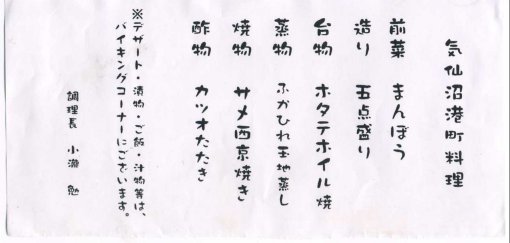 気仙沼港町料理
前菜 まんぼう
造り 五点盛り
台物 ホタテホイル焼
蒸物 ふかひれ玉地蒸し
焼物 サメ西京焼き
酢物 カツオたたき
※デザート・漬物・ご飯・汁物等は、
バイキングコーナーにございます。
調理長 小瀧 勉